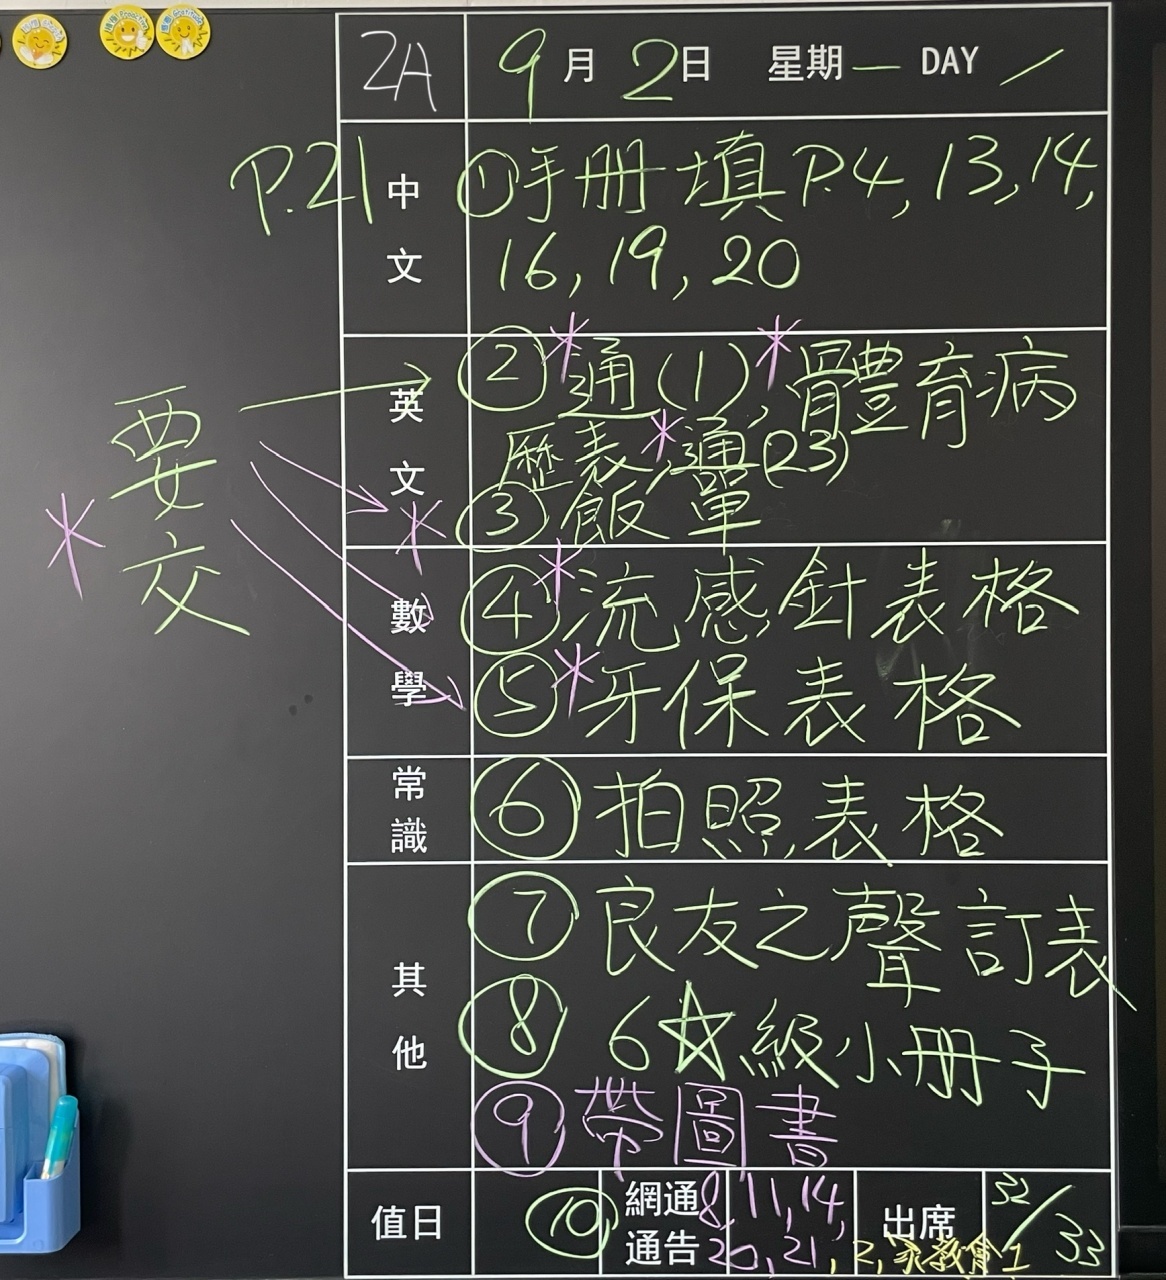 2A 9月2日 星期一 DAY /
P.21
中文
①手冊填P.4, 13, 14,
16, 19, 20
要交
*
英文
②*通(1), *體育病
歷表, *通(23)
*③飯單
數學
④*流感針表格
⑤*牙保表格
常識
⑥拍照表格
其他
⑦良友之聲訂表
⑧6☆級小冊子
⑨帶圖書
值日
⑩ 網通 8, 11, 14,
通告 20, 21, 2, 家教會1
出席 32/33